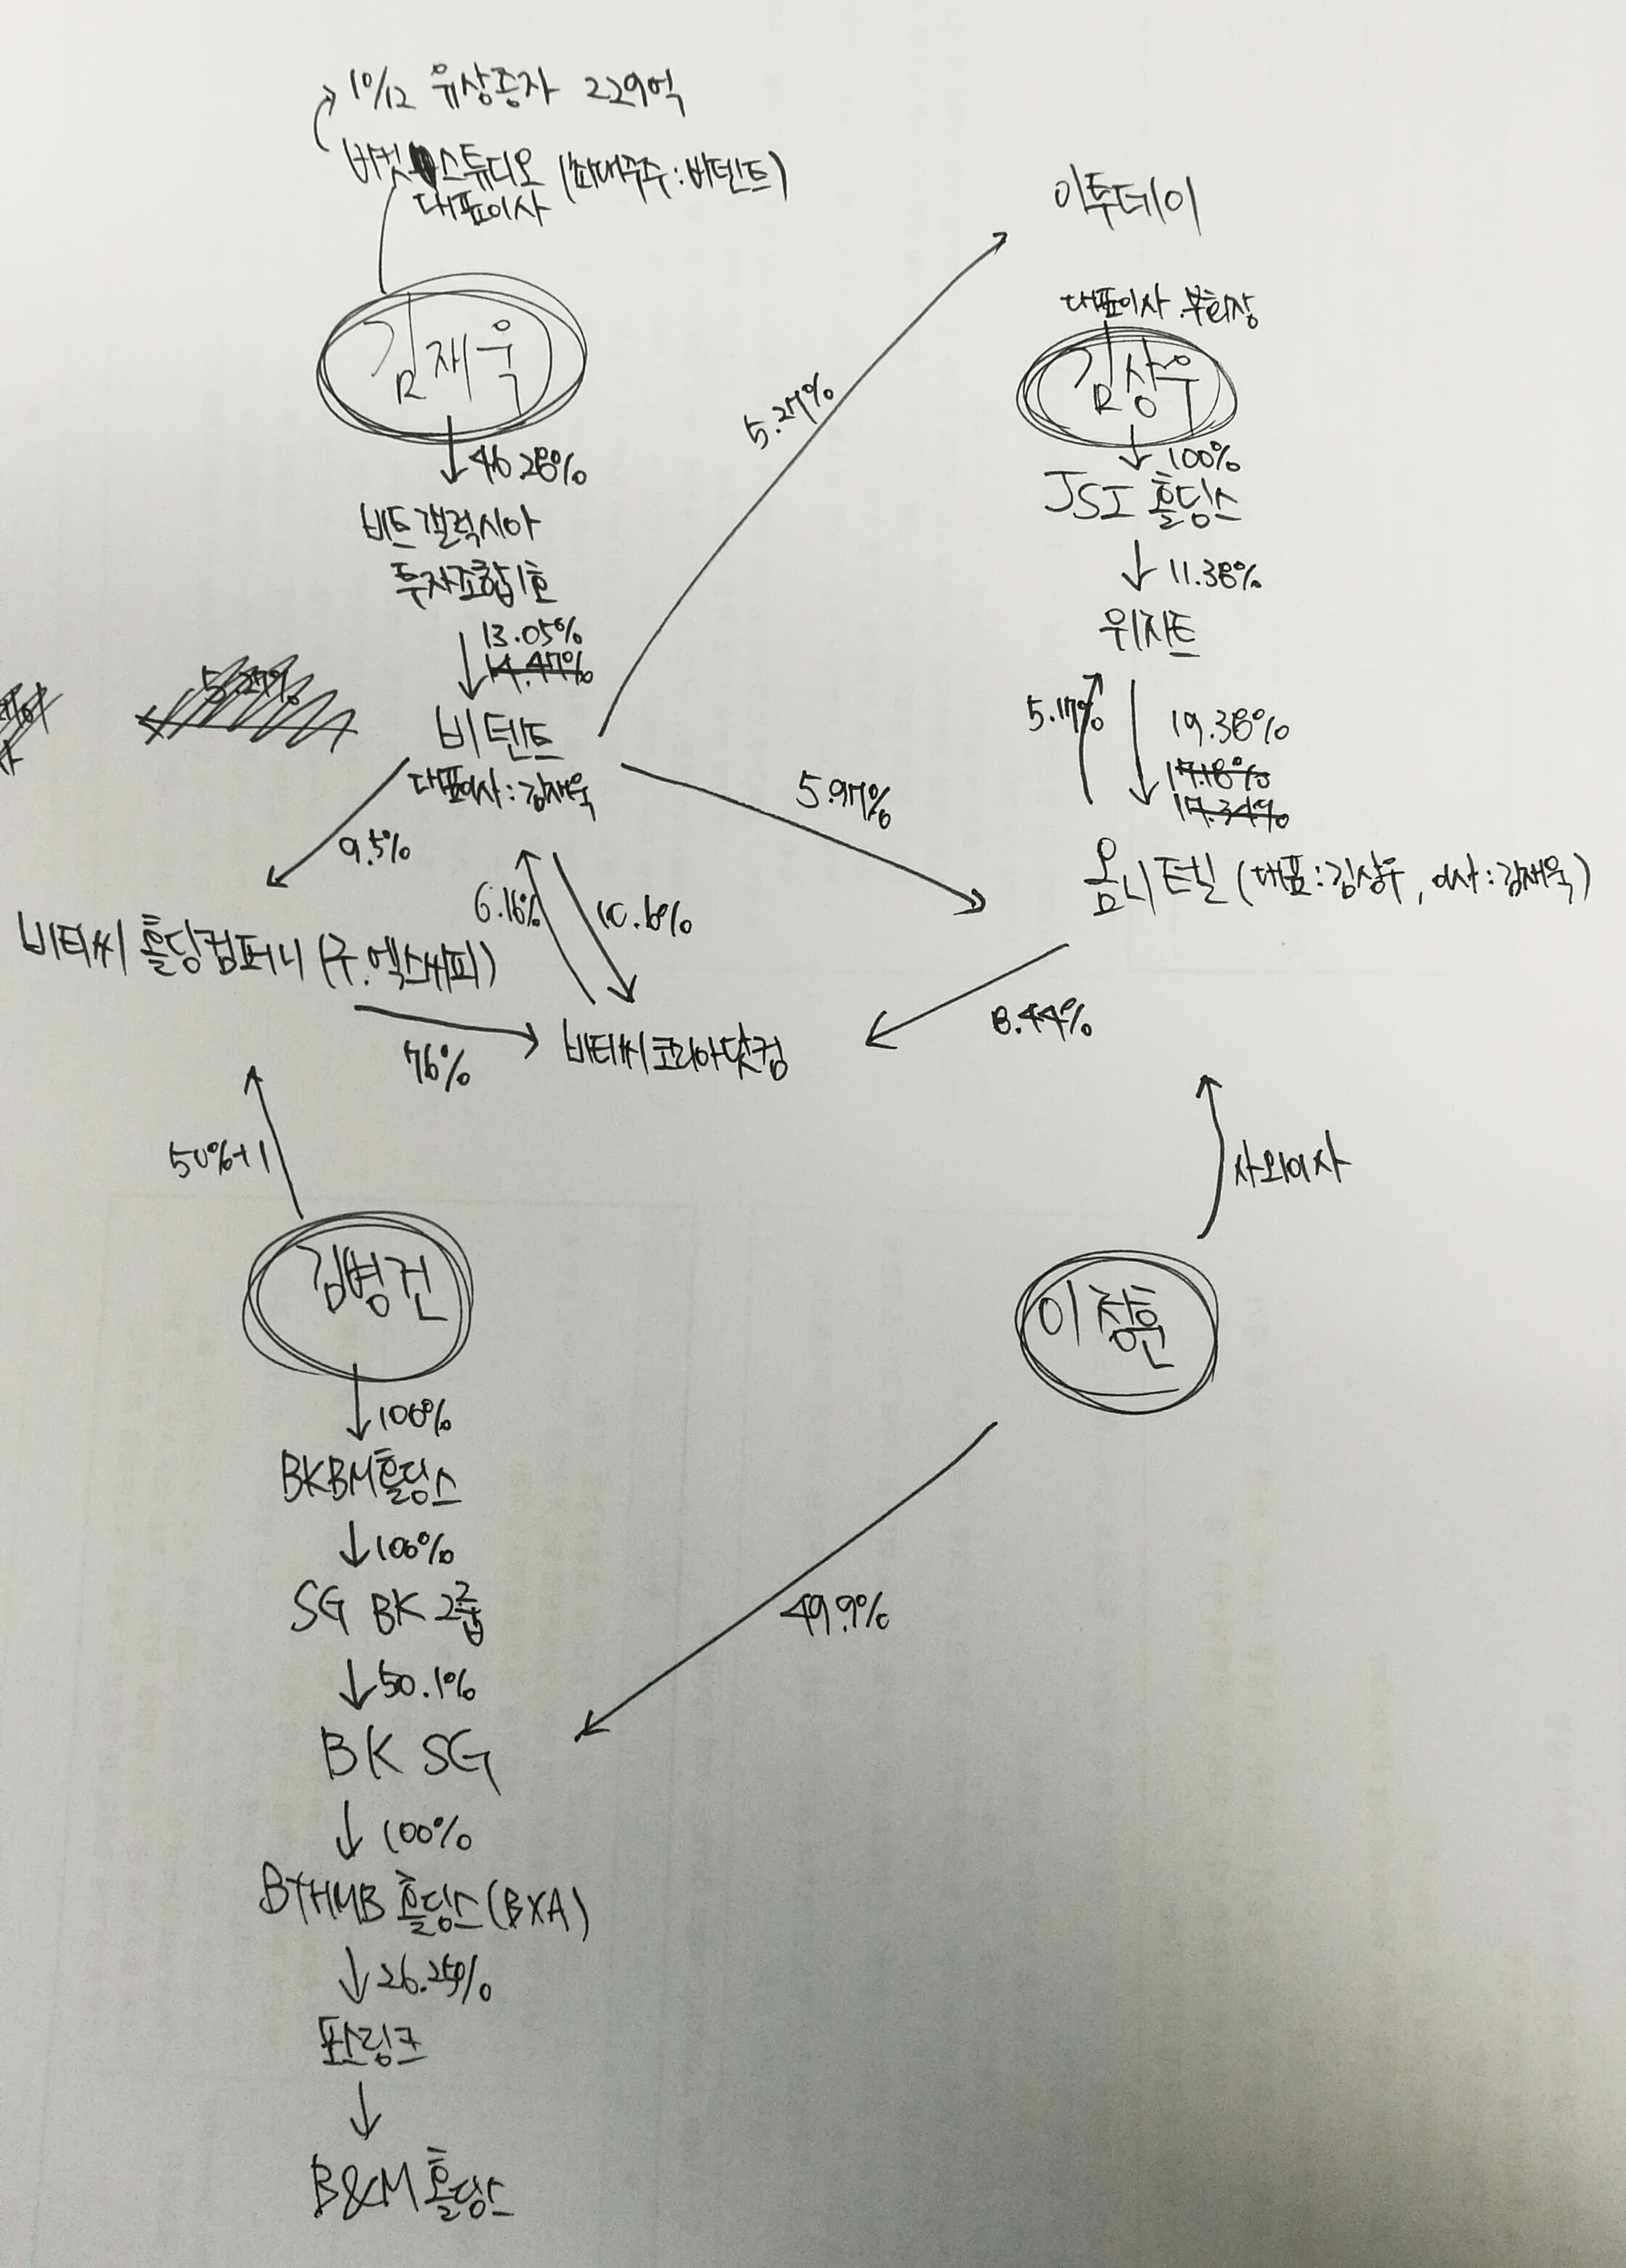 10/12 유상증자 229억
버킷스튜디오 (최대주주:비덴트)
대표이사
이투데이
대표이사 부회장
김재욱
김상우
46.28%
5.27%
100%
JSI 홀딩스
비트갤럭시아
투자조합1호
11.38%
위지트
13.05%
14.47%
5.27%
비텐트
대표이사:김재욱
5.17%
19.38%
17.18%
17.34%
5.97%
9.5%
옴니텔 (대표:김상우, 이사:김재욱)
6.16%
10.6%
비티씨 홀딩컴퍼니 (구.엑스씨피)
8.44%
76%
비티씨코리아닷컴
50%+1
사외이사
김병건
이정훈
100%
BKBM홀딩스
100%
SG BK그룹
49.9%
50.1%
BK SG
100%
BTHMB 홀딩스(BXA)
26.25%
판링크
B&M 홀딩스